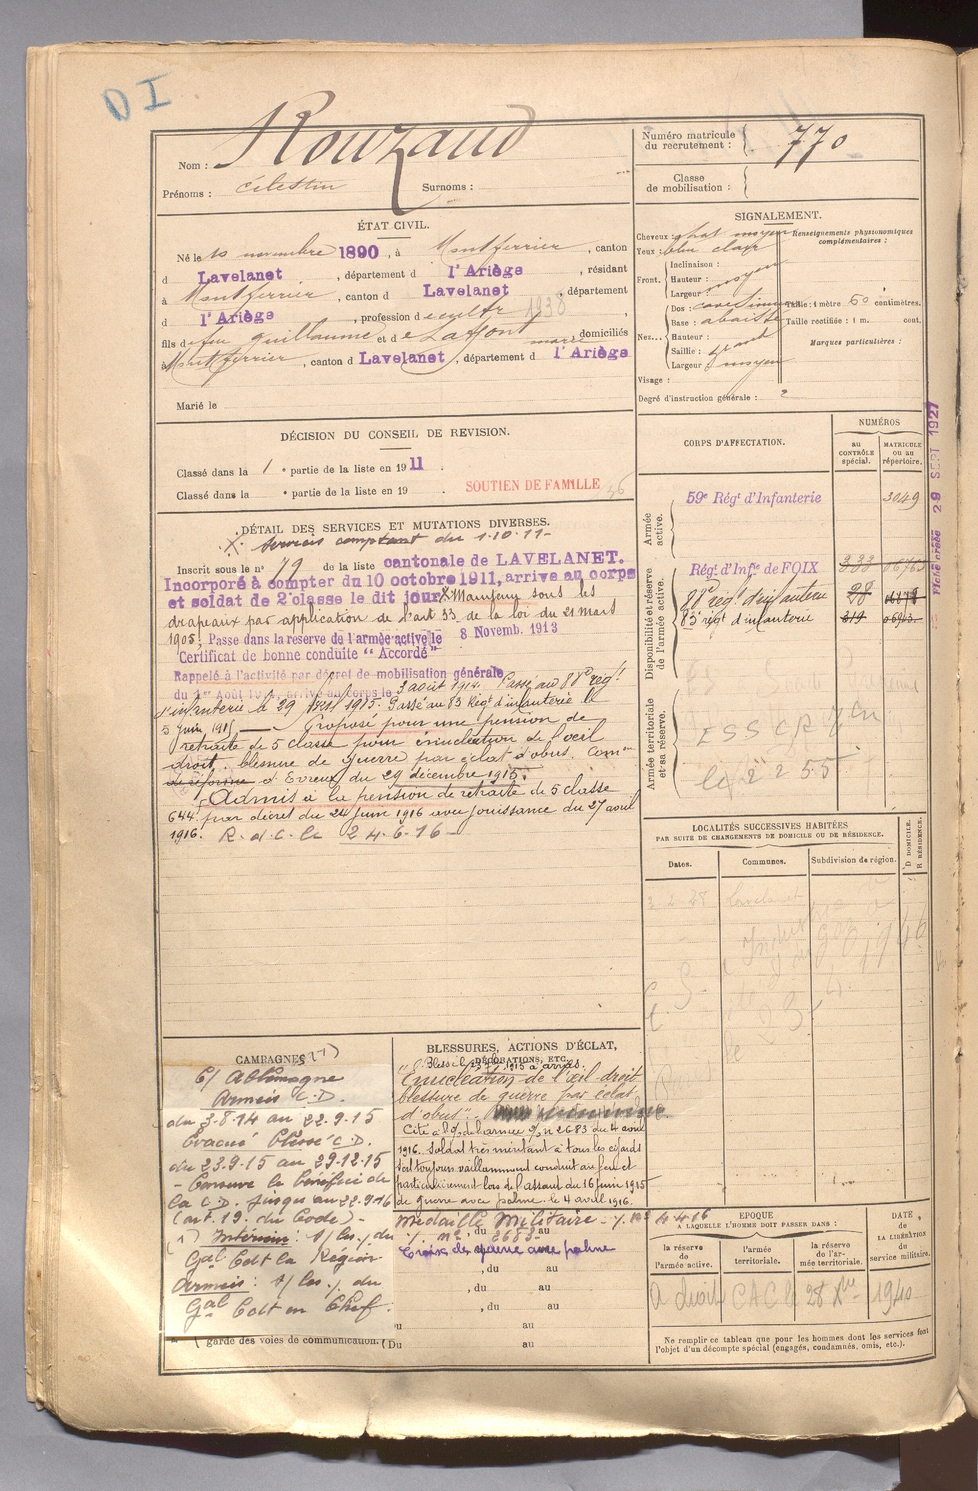 DI
Nom : Rouzaud
Prénoms : Célestin Surnoms :
Numéro matricule du recrutement : 770
Classe de mobilisation :
ÉTAT CIVIL.
Né le 10 novembre 1890, à Montferrier, canton
d Lavelanet, département d l'Ariège, résidant
à Montferrier, canton d Lavelanet, département
d l'Ariège, profession d cultr 1938,
fils de feu Guillaume et de Laffont domiciliés
à Montferrier, canton d Lavelanet, département d l'Ariège
Marié le
SIGNALEMENT.
Cheveux : chat. moyen
Yeux : bleu clair
Front. Inclinaison :
Hauteur : moyen
Largeur :
Nez... Dos :
Base : abaissé
Hauteur :
Saillie : grand
Largeur : moyen
Visage :
Degré d'instruction générale : 2
Renseignements physionomiques complémentaires :
Taille : 1 mètre 60 centimètres.
Taille rectifiée : 1 m. cent.
Marques particulières :
DÉCISION DU CONSEIL DE REVISION.
Classé dans la 1 e partie de la liste en 1911.
Classé dans la e partie de la liste en 19 .
SOUTIEN DE FAMILLE
DÉTAIL DES SERVICES ET MUTATIONS DIVERSES.
X. Services comptant du 1.10.11-
Inscrit sous le n° 79 de la liste cantonale de LAVELANET.
Incorporé à compter du 10 octobre 1911, arrive au corps
et soldat de 2e classe le dit jour X Maintenu sous les
drapeaux par application de l'art 33 de la loi du 21 mars
1905. Passé dans la réserve de l'armée active le 8 Novemb. 1913
Certificat de bonne conduite "Accordé"
Rappelé à l'activité par décret de mobilisation générale
du 1er Août 1914, arrivé au corps le 3 août 1914. Passé au 88e régt
d'infanterie le 29 1915. Passé au 83 Régt d'infanterie le
5 juin 1915 — Proposé pour une pension de
retraite de 5 classe pour énucléation de l'œil
droit. blessure de guerre par éclat d'obus. Comon
de réforme d'Evreux du 29 décembre 1915.
Admis à la pension de retraite de 5 classe
644f par décret du 24 juin 1916 avec jouissance du 27 avril
1916. R. d. C. le 24-6-16-
CORPS D'AFFECTATION.
NUMÉROS
au CONTRÔLE spécial.
MATRICULE ou au répertoire.
Armée active.
59e Régt d'Infanterie 3049
Disponibilité et réserve de l'armée active.
Régt d'Infie de FOIX 333
88e régt d'infanterie 28
83e régt d'infanterie 319
Armée territoriale et sa réserve.
le 2 2 55
29 SEPT 1927
LOCALITÉS SUCCESSIVES HABITÉES
PAR SUITE DE CHANGEMENTS DE DOMICILE OU DE RÉSIDENCE.
Dates. Communes. Subdivision de région. D DOMICILE. R RÉSIDENCE.
Lavelanet
CAMPAGNES (1)
C/ Allemagne
Armées C.D.
du 3-8-14 au 22-9-15
Évacué blessé C.D.
du 23.9.15 au 29-12-15
- Conserve le bénéfice de
la C.D. jusqu'au 22-9-16
(art. 19. du Code) -
(1) Intérieur : s/ les ./. du
Gal Cdt la Région
Armées : s/ les ./. du
Gal Cdt en Chef
garde des voies de communication. Du au
BLESSURES, ACTIONS D'ÉCLAT,
DÉCORATIONS, ETC.
Énucléation de l'œil droit
blessure de guerre par éclat
d'obus".
Cité à l'o/ de l'armée % n 2683 du 4 avril
1916. Soldat très méritant à tous les égards
s'est toujours vaillamment conduit au feu et
particulièrement lors de l'assaut du 16 juin 1915
de guerre avec palme. le 4 avril 1916.
Médaille Militaire -
Croix de guerre avec palme
, du au
, du au
, du au
Du au
4-4-16
EPOQUE
A LAQUELLE L'HOMME DOIT PASSER DANS :
la réserve de l'armée active.
l'armée territoriale.
la réserve de l'armée territoriale.
DATE de LA LIBÉRATION du service militaire.
à droit 28 Xbre 1940
Ne remplir ce tableau que pour les hommes dont les services font
l'objet d'un décompte spécial (engagés, condamnés, omis, etc.).